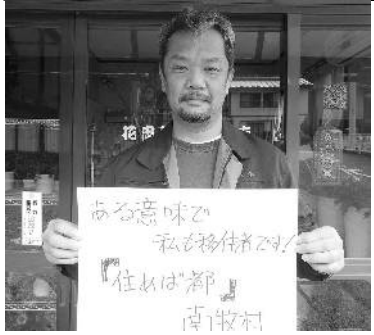 ある意味で
私も移住者です!
『住めば都』
南牧村